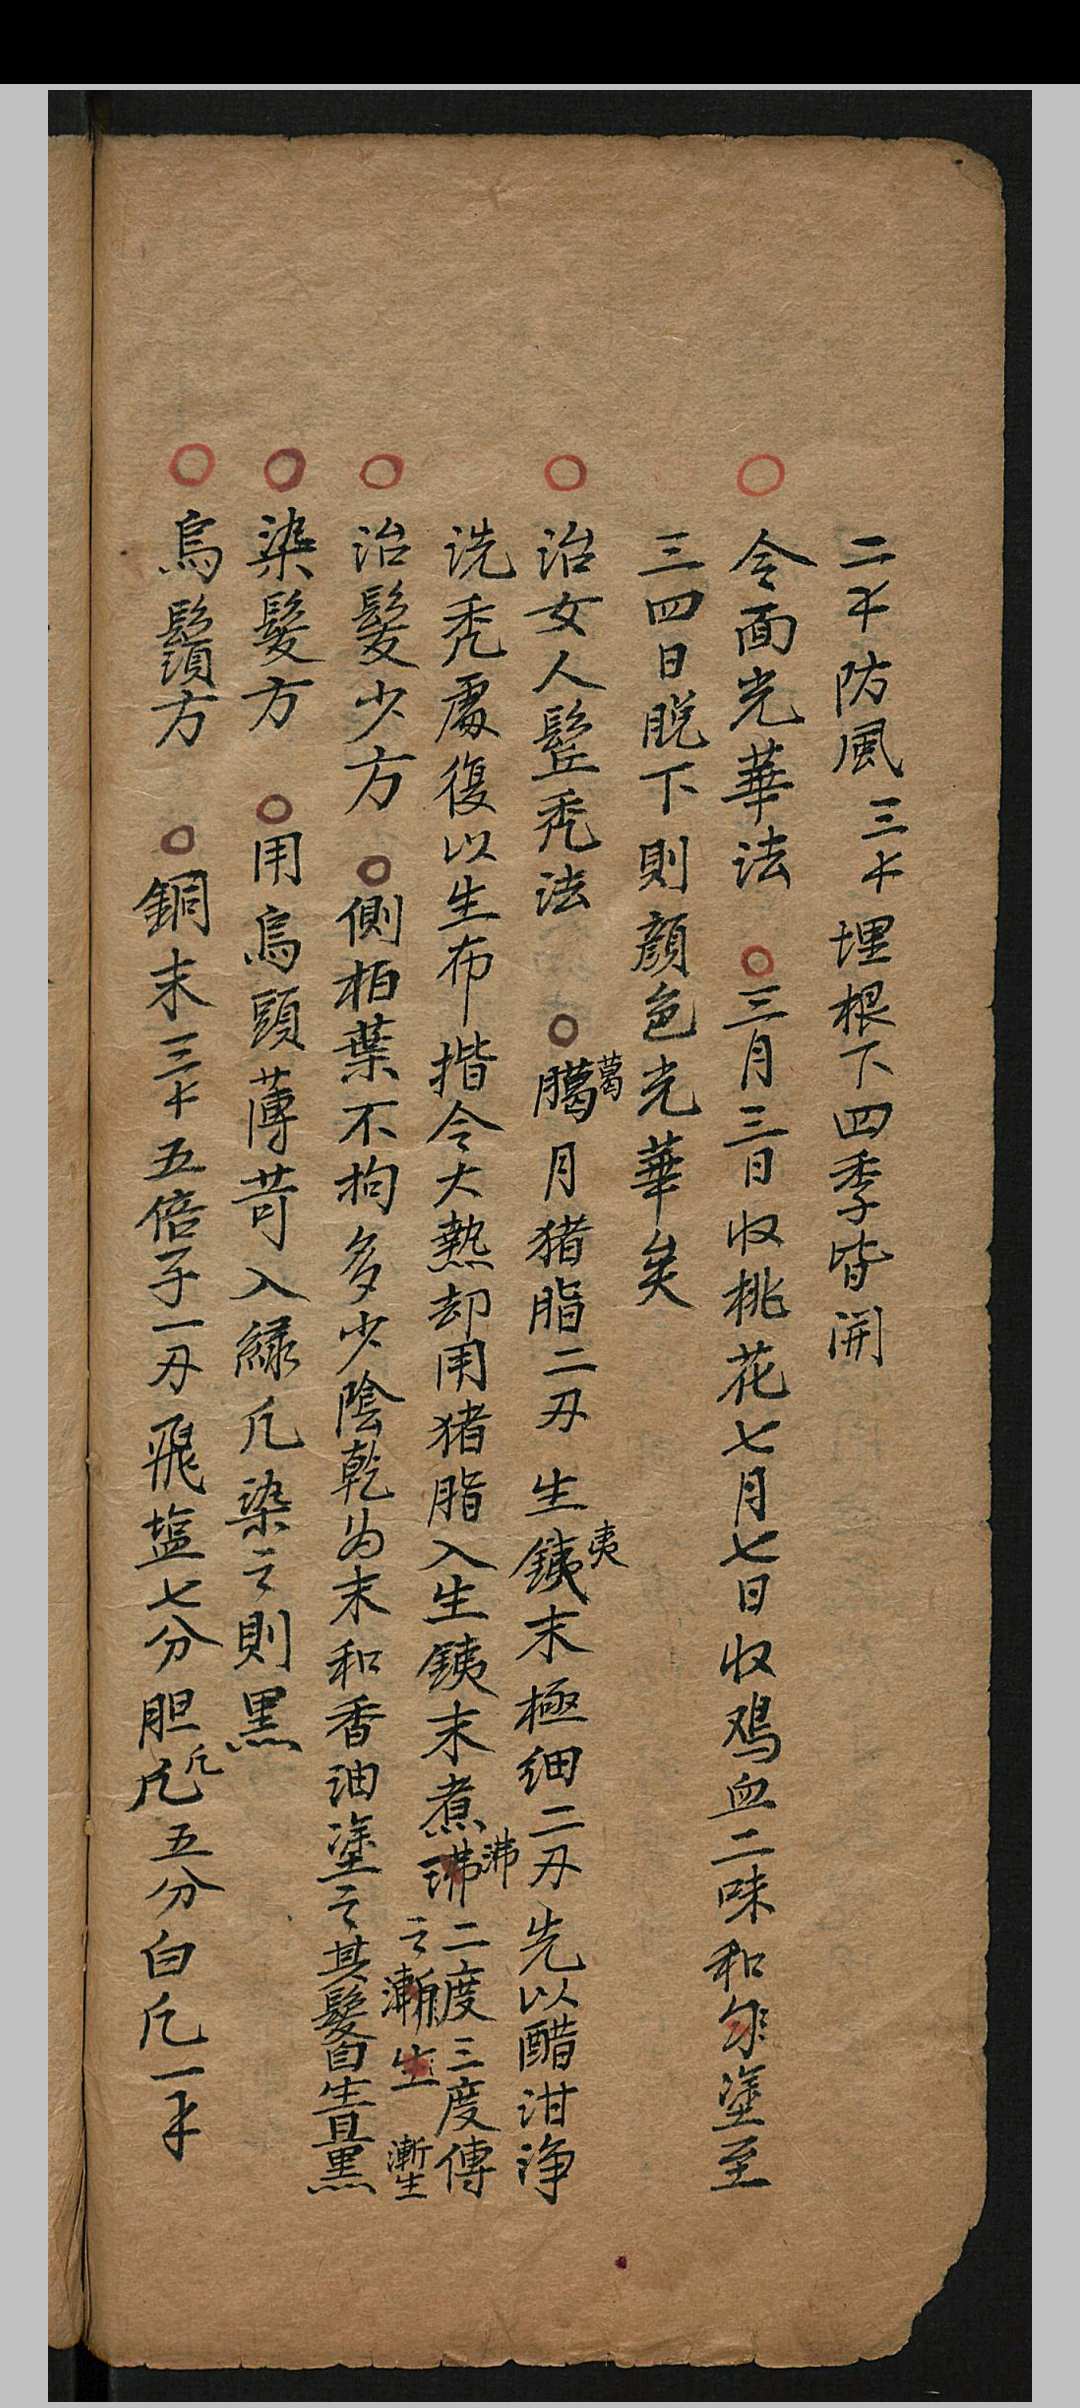 二 防風三 埋根下四季皆開
○令面光華法 ○三月三日收桃花七月七日收鸡血二味和匀塗至
三四日脱下則顔色光華矣
○治女人髮秃法 ○臈月猪脂二刄生銕末極细二刄先以醋泔浄
蔦
夷
洗秃處復以生布揩令大熱却用猪脂入生銕末煮沸二度三度傅
沸
之漸生
漸生
○治髮少方 ○側柏葉不拘多少陰乾为末和香油塗之其髮自生且黒
○染髮方 ○用烏頭薄苛入緑凢染之則黒
○烏鬚方 ○銅末三 五倍子一刄飛塩七分胆凢五分白凢一
凢